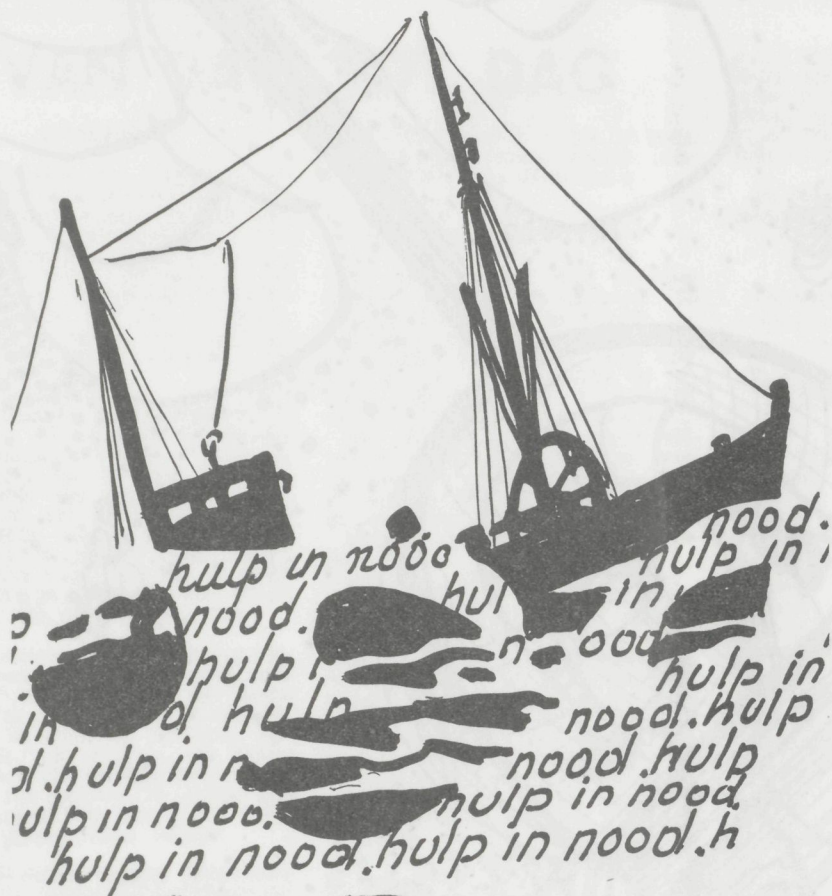 nood.
hulp in nood hulp in
hul in
nood.
n ood
hulp hulp in
in d hulp nood.hulp
d.hulp in n nood.hulp
ulp in nood. hulp in nood.
hulp in nood.hulp in nood.h